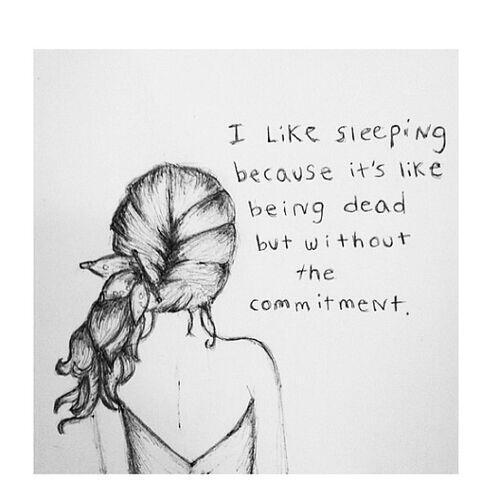 I LiKe sleeping
because it's like
being dead
but without
the
commitment.